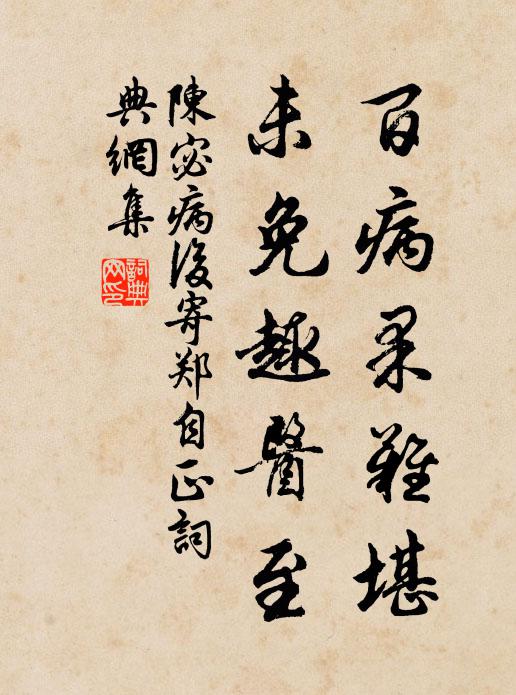 百病果難堪
未免趣醫至
陳宓病後寄郑自正詞
典網集
詞典
网印